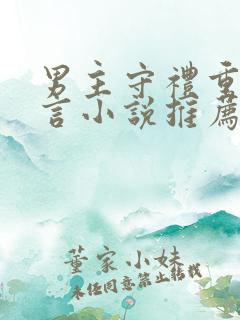 男主守禮重
言小說推薦
董家小妹
未經同意禁止轉載